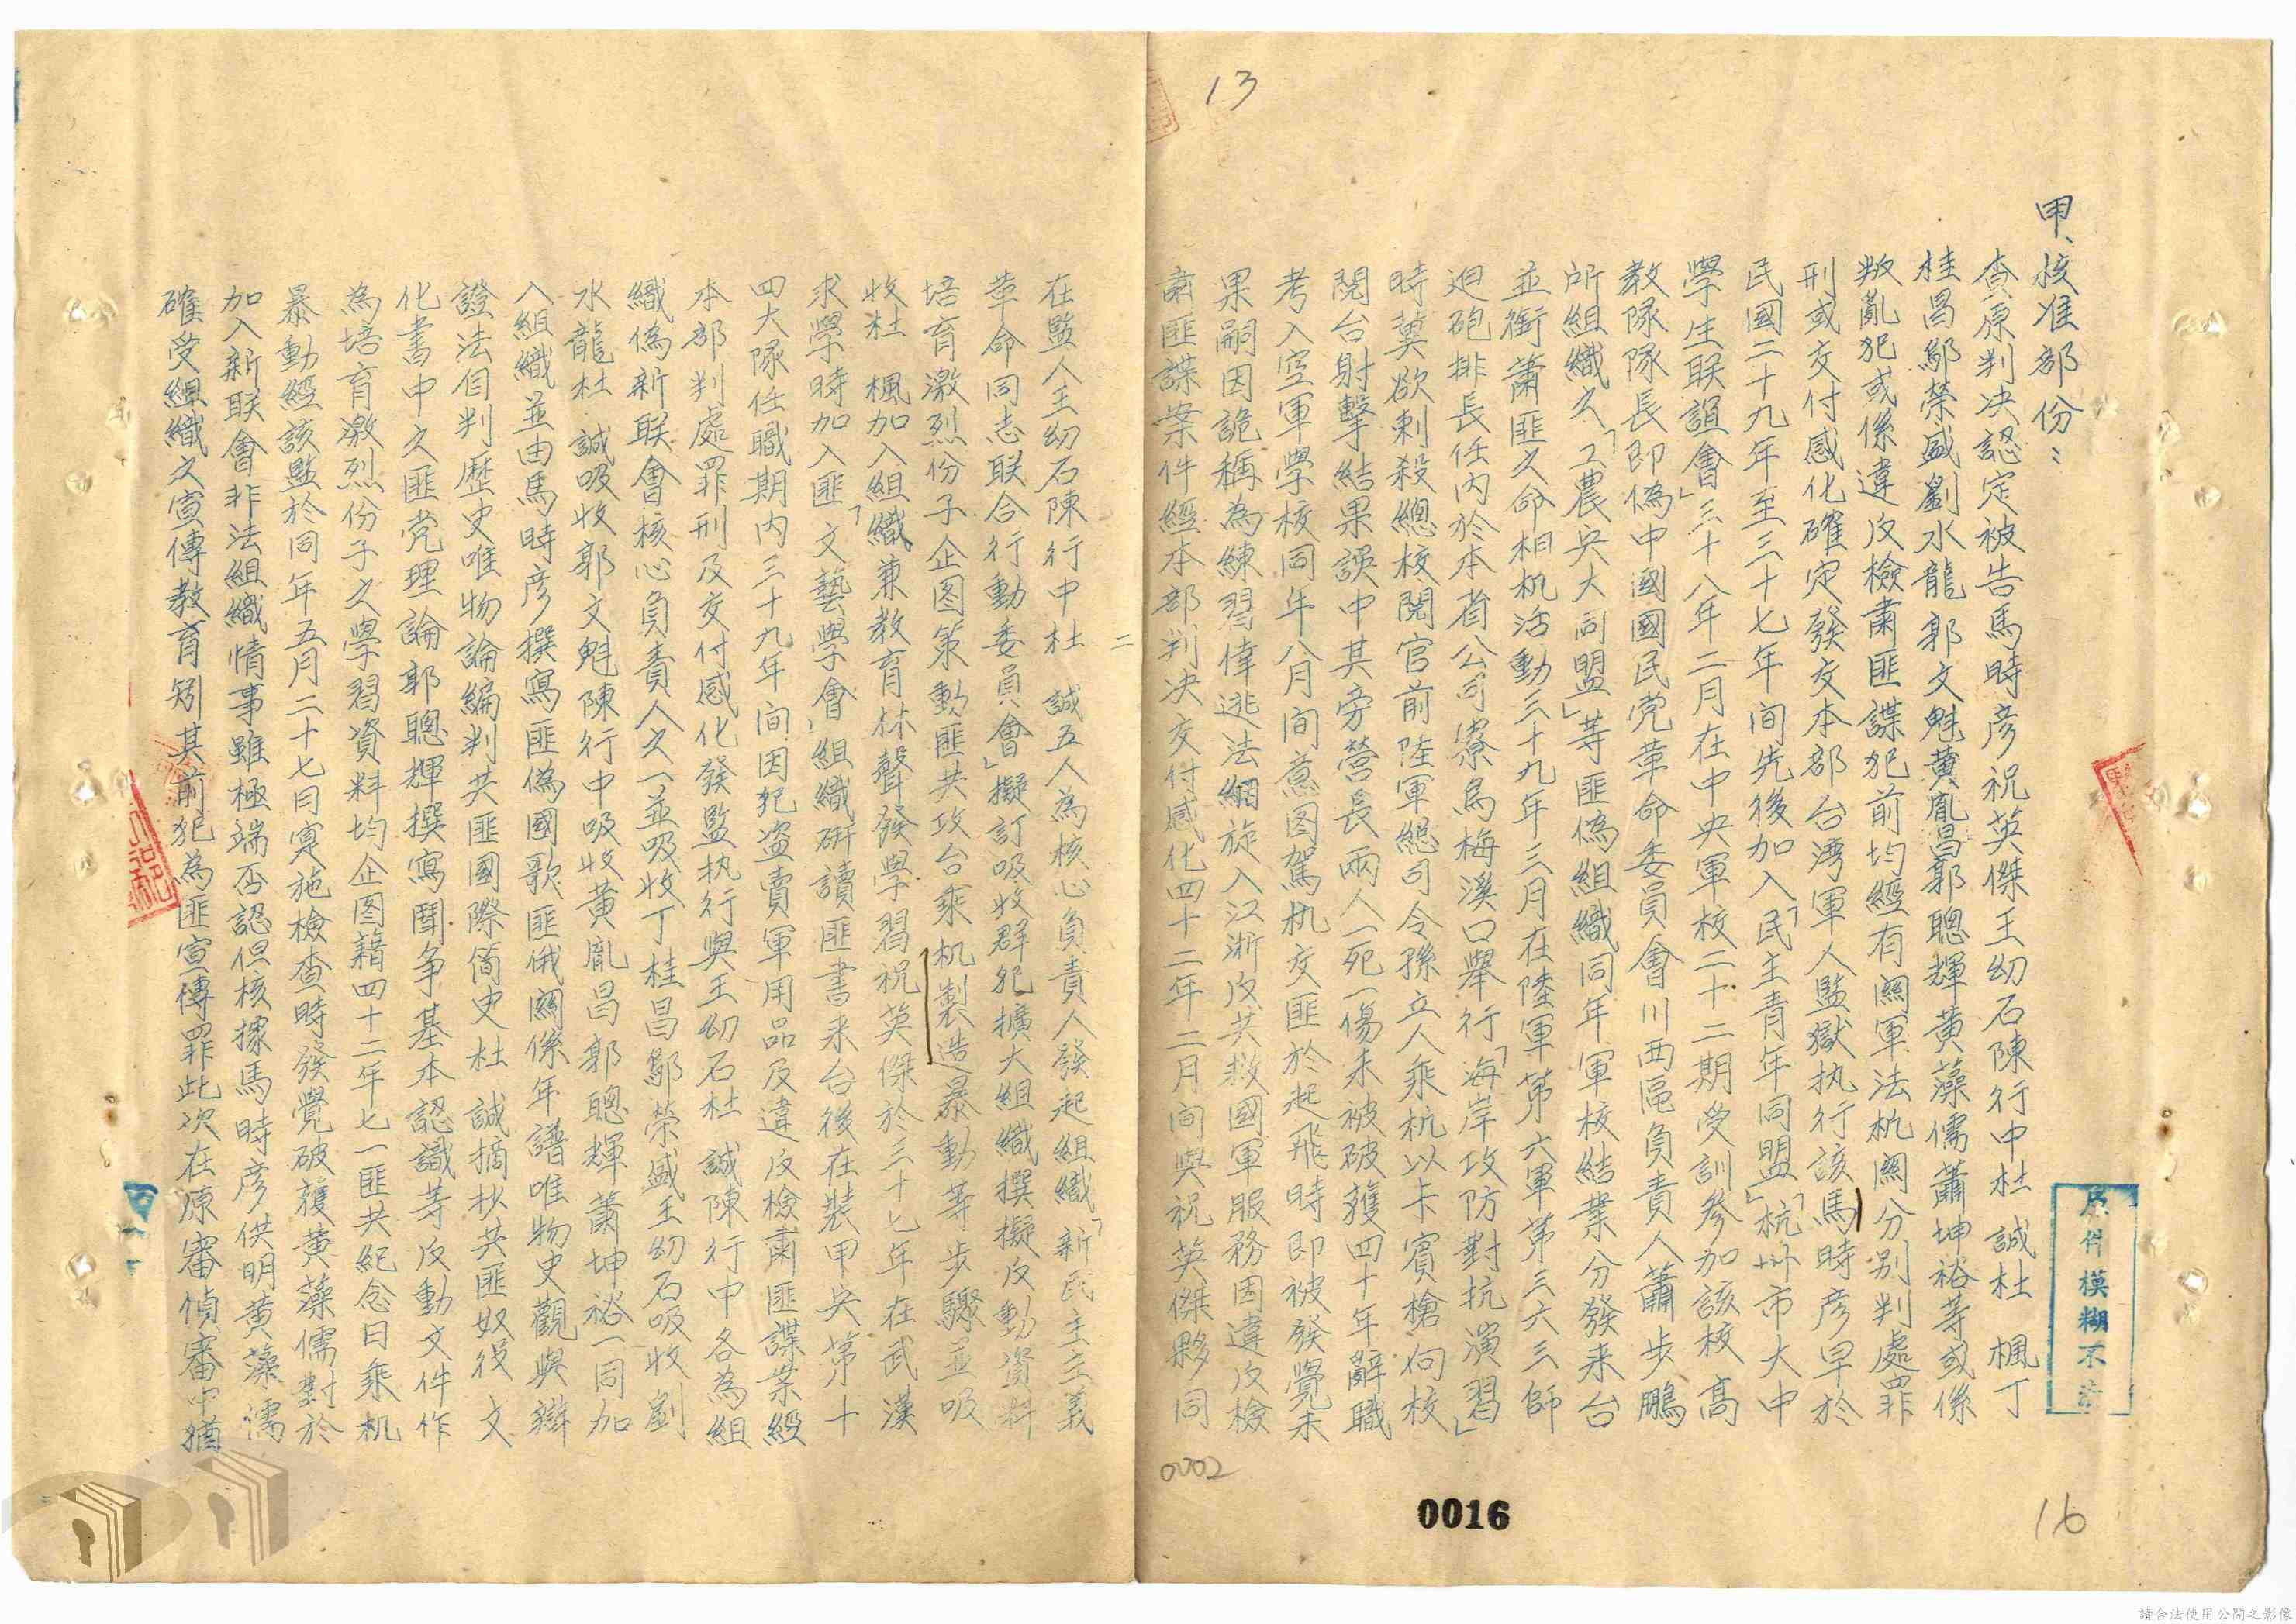 13
甲、核准部份：
查原判決認定被告馬時彦祝英傑王幼石陳行中杜　誠杜　楓丁
桂昌鄔榮盛劉水龍郭文魁黃胤昌郭聰輝黃藻儒蕭坤裕等或係
叛亂犯或係違反檢肅匪諜犯前均經有関軍法机関分别判處罪
刑或交付感化確定發交本部台湾軍人監獄执行該馬時彦早於
民國二十九年至三十七年间先後加入「民主青年同盟」「杭州市大中
學生联誼會」三十八年二月在中央軍校二十二期受訓參加該校高
教隊隊長即偽中國國民党革命委員會川西區負責人蕭步鵬
所組織之「工農央大同盟」等匪偽組織同年軍校結業分發来台
並銜蕭匪之命相机活動三十九年三月在陸軍第六軍第三六三師
迫砲排長任内於本省公司寮烏梅溪口舉行「海岸攻防對抗演習」
時冀欲刺殺總校閱官前陸軍總司令孫立人乘杭以卡賓槍向校
閱台射擊結果誤中其旁營長兩人一死一傷未被破獲四十年辭職
考入空軍学校同年八月间意图駕机交匪於起飛時即被發覺未
果嗣因詭稱為練習倖逃法網旋入江浙反共救國軍服務因違反檢
肅匪諜案件經本部判决交付感化四十二年二月间與祝英傑夥同
0002
0016
16
原件模糊不清
二
在監人王幼石陳行中杜　誠五人為核心負責人發起組織「新民主主義
革命同志联合行動委員會」擬訂吸收群犯擴大組織撰擬反動資料
培育激烈份子企图策動匪共攻台乘机製造暴動等步驟並吸
收杜　楓加入組織兼教育林聲發學習祝英傑於三十七年在武漢
求學時加入匪「文藝學會」組織研讀匪書来台後在裝甲兵第十
四大隊任職期内三十九年间因犯盗賣軍用品及違反檢肅匪諜案經
本部判處罪刑及交付感化發監执行與王幼石杜　誠陳行中各為組
織偽新联會核心負責人之一並吸收丁桂昌鄔榮盛王幼石吸收劉
水龍杜　誠吸收郭文魁陳行中吸收黃胤昌郭聰輝蕭坤裕一同加
入組織並由馬時彦撰寫匪偽國歌匪俄関係年譜唯物史觀與辯
證法自判歷史唯物論編判共匪國際简史杜　誠摘抄共匪奴役文
化書中之匪党理論郭聰輝撰寫鬪争基本認識等反動文件作
為培育激烈份子之學習資料均企图藉四十二年七一匪共紀念日乘机
暴動經該監於同年五月二十七日寔施檢查時發覺破獲黃藻儒對於
加入新联會非法組織情事雖極端否認但核據馬時彦供明黃藻儒
確受組織文宣傳教育矧其前犯為匪宣傳罪此次在原審偵審中猶
請合法使用公開之影像